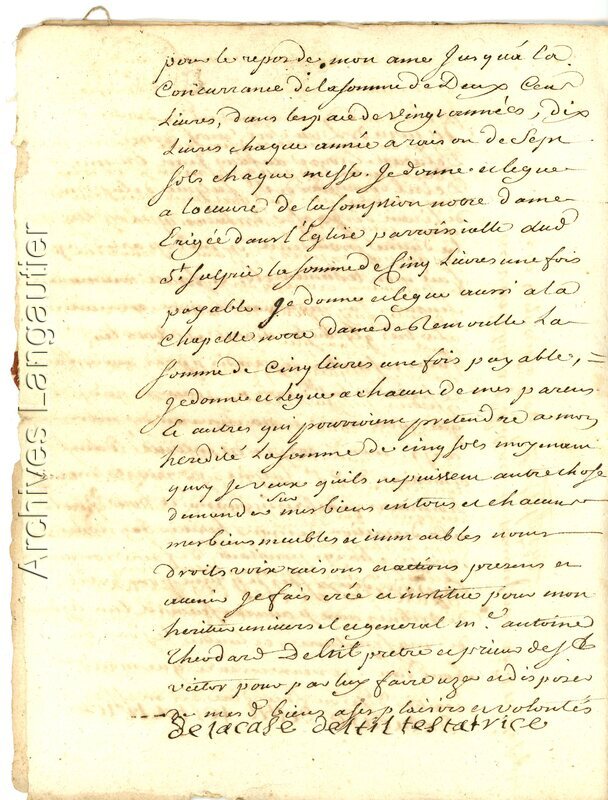 pour le repos de mon ame jusqu'a la
Concurrance de la somme de Deux Cent
Livres, dans lespace de vingt années, dix
Livres chaque année a raison de Sept
sols chaque messe. Je donne et legue
a loeuvre de lasomption notre dame
Erigée dans l'Eglise parroissialle dud
St. Sulpice la somme de Cinq Livres une fois
payable. Je donne et legue aussi a la
chapelle notre dame de La
somme de Cinq livres une fois payable,
Je donne et Legue a chacun de mes parens
Et autres qui pourroient pretendre a mon
heredité La somme de cinq sols moyenant
quoy je veux qu'ils ne puissent autre chose
demander sur mes biens en tous et chacuns
mes biens meubles et immeubles noms
droits voix raisons et actions presens et
avenir Je fais crée et institue pour mon
heritier universel et general me. antoine
Theodard Deltil pretre et prieur de St
victor pour par luy faire uzer et disposer
de mesd biens a ses plaisirs et volontés
de lacase deltil testatrice
Archives Langautier